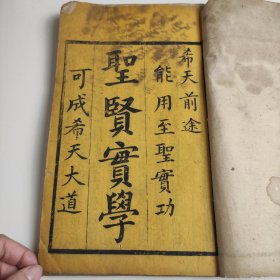 希天前途
能用至聖實功
聖賢實學
可成希天大道